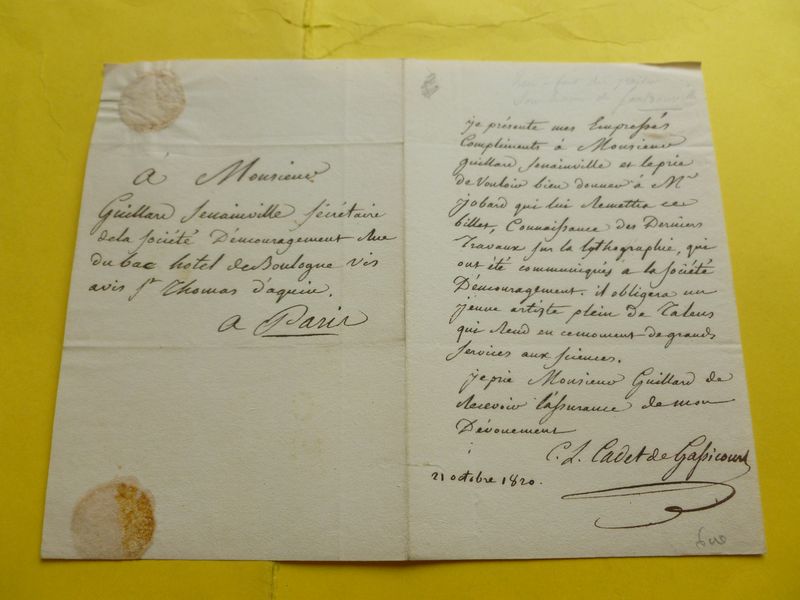 à Monsieur
Guillard Senainville sécrétaire
de la société Démcouragement Rue
du bac hotel de Boulogne vis
avis St Thomas d'aquin.
a Paris
je présente mes Empressés
Compliments à Monsieur
guillard Senainville et le prie
de Vouloir bien donner à Mr
jobard qui lui Remettra ce
billet, Connaissance des Derniers
Travaux sur la lythographie, qui
ont été communiqués à la société
Démcouragement. il obligera un
jeune artiste plein de Talens
qui Rend en cemoment de grands
services aux sciences.
je prie Monsieur Guillard de
Recevoir l'assurance de mon
Dévouement
C. L. Cadet de Gassicourt
21 octobre 1820.